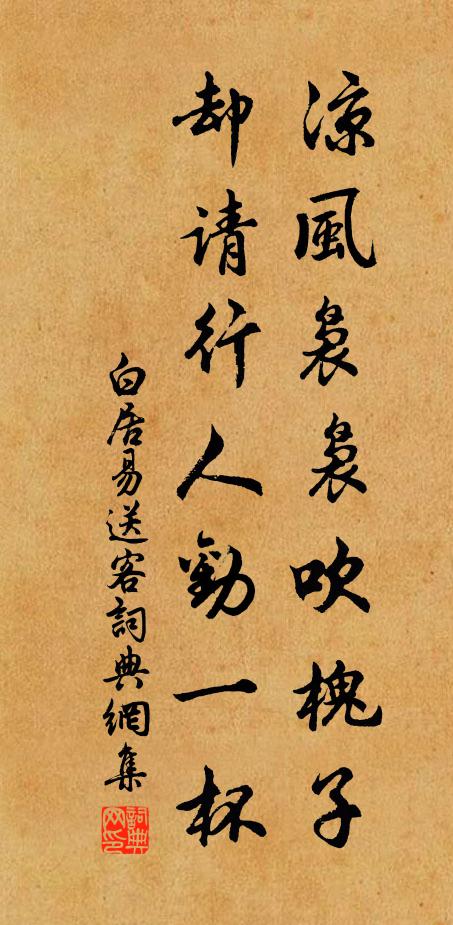 涼風裊裊吹槐子
却请行人勸一杯
白居易送客詞典網集
詞典网印